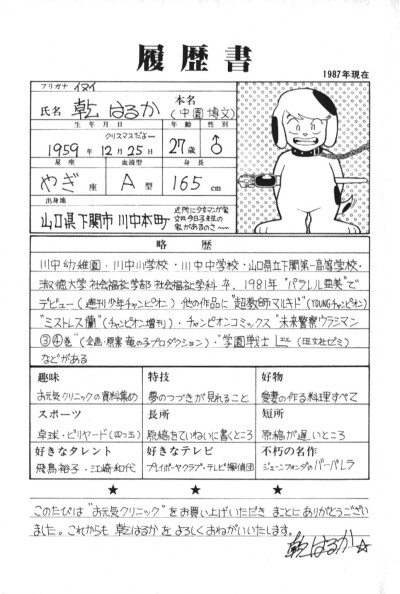 履歴書
1987年現在
フリガナ イヌイ
氏名 乾 はるか
本名
(中園 博文)
生年月日 年齢 性別
クリスマスだよー
1959年12月25日 27歳 ♂
星座 血液型 身長
やぎ座 A型 165cm
出身地
山口県下関市川中本町
近所に少女マンガ家
文月今日子先生の
家があるのさ〜
略歴
川中幼稚園・川中小学校・川中中学校・山口県立下関第一高等学校・
淑徳大学社会福祉学部社会福祉学科卒。1981年"パラレル亜美"で
デビュー(週刊少年チャンピオン)他の作品に"超教師マルキド"(YOUNGチャンピオン)
"ミストレス蘭"(チャンピオン増刊)・チャンピオンコミックス"未来警察ウラシマン
③④巻"(企画・原案 竜の子プロダクション)・"学園戦士
(旺文社ゼミ)
などがある
趣味 特技 好物
お元気クリニックの資料集め 夢のつづきが見れること 愛妻の作る料理すべて
スポーツ 長所 短所
卓球・ビリヤード(四つ玉) 原稿をていねいに書くところ 原稿が遅いところ
好きなタレント 好きなテレビ 不朽の名作
飛鳥裕子・江崎和代 プレイボーヤクラブ・テレビ探偵団 ジェーンフォンダのバーバレラ
★ ★ ★
このたびは"お元気クリニック"をお買い上げいただき まことにありがとうござい
ました。これからも 乾はるか をよろしくおねがいいたします。
乾はるか☆